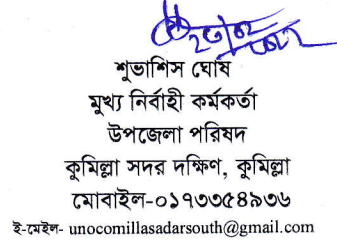 শুভাশিস ঘোষ
মুখ্য নির্বাহী কর্মকর্তা
উপজেলা পরিষদ
কুমিল্লা সদর দক্ষিণ, কুমিল্লা
মোবাইল-০১৭৩৩৩৫৪৯৩৬
ই-মেইল- unocomillasadarsouth@gmail.com